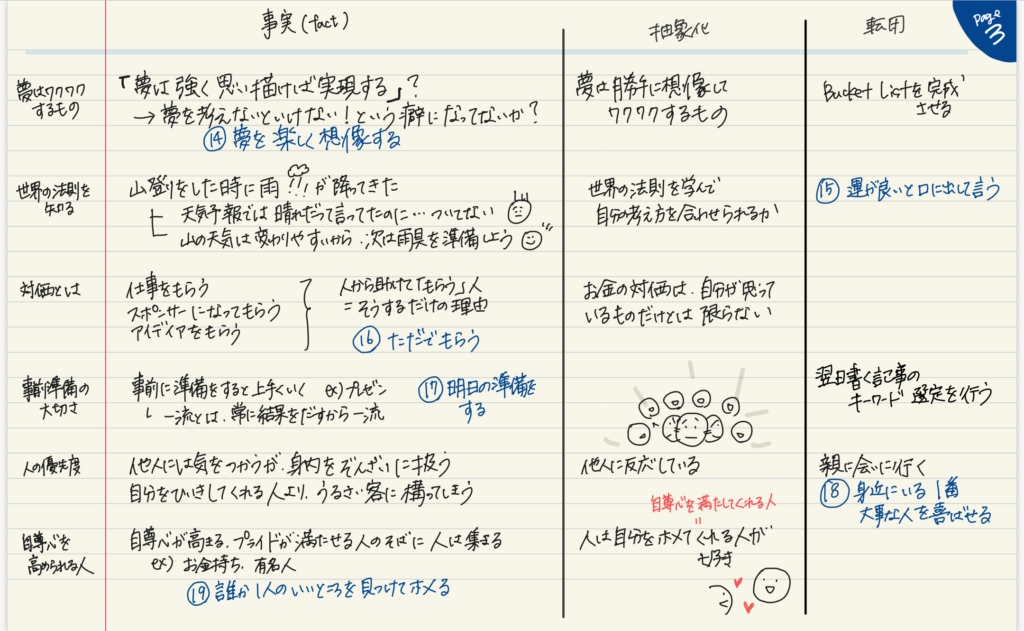 Page 3
事実(fact)
抽象化
転用
夢はワクワク
するもの
「夢は強く思い描けば実現する」?
→夢を考えないといけない!という癖になってないか?
⑭夢を楽しく想像する
夢は勝手に想像して
ワクワクするもの
Bucket Listを完成
させる
世界の法則を
知る
山登りをした時に雨!!!が降ってきた
天気予報では晴れだって言ってたのに…ついてない
山の天気は変わりやすいから、次は雨具を準備しよう
世界の法則を学んで
自分の考え方を合わせられるか
⑮運が良いと口に出して言う
対価とは
仕事をもらう
スポンサーになってもらう
アイデイアをもらう
人から助けて「もらう」人
=そうするだけの理由
⑯ただでもらう
お金の対価は、自分が思って
いるものだけとは限らない
事前準備の
大切さ
事前に準備をすると上手くいく ex)プレゼン
一流とは、常に結果をだすから一流
⑰明日の準備を
する
翌日書く記事の
キーワード選定を行う
人の優先度
他人には気をつかうが、身内をぞんざいに扱う
自分をひいきしてくれる人より、うるさい客に構ってしまう
他人に反応している
親に会いに行く
⑱身近にいる1番
大事な人を喜ばせる
自尊心を
高められる人
自尊心が高まる、プライドが満たせる人のそばに人は集まる
ex)お金持ち、有名人
⑲誰か1人のいいところを見つけてホメる
自尊心を満たしてくれる人
=
人は自分をホメてくれる人が
大好き